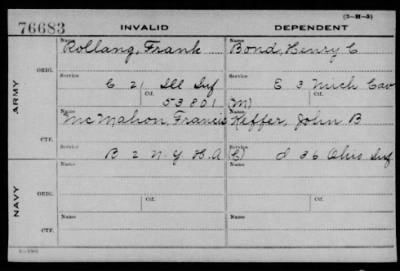 (3-M-5)
76683 INVALID DEPENDENT
Name Name
Rollang, Frank Bond, Henry C
ARMY
ORIG.
Service Service
E 21 Ill Inf E 3 Mich Cav
Ctf. Ctf.
53801 (M)
Name Name
McMahon, Francis Keffer, John B
CTF.
Service Service
B 2 N.Y. H.A. I 36 Ohio Inf
NAVY
ORIG.
Name Name
Service Ctf. Service Ctf.
CTF.
Name Name
Service Service